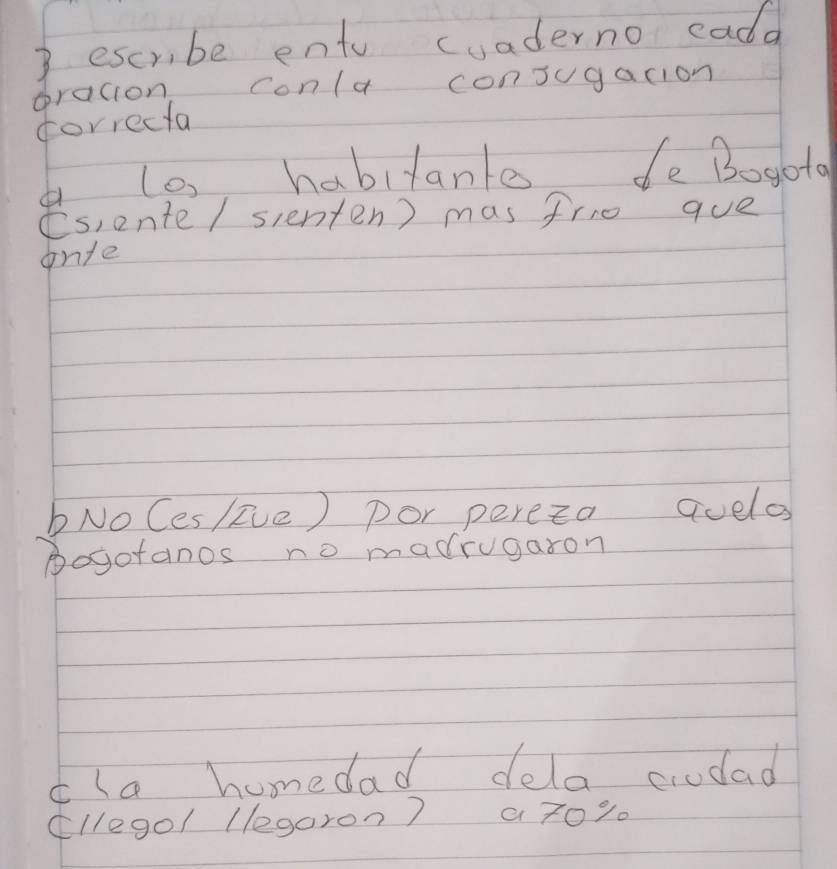 3 escribe entu cuaderno cada
oracion conla conjugacion
correcta
a los habitantes de Bogota
(siente/sienten) mas frio que
ante
b No (es/Fue) por pereza quelos
Bogotanos no madrugaron
c La humedad dela ciudad
(llego/llegaron) a 70%